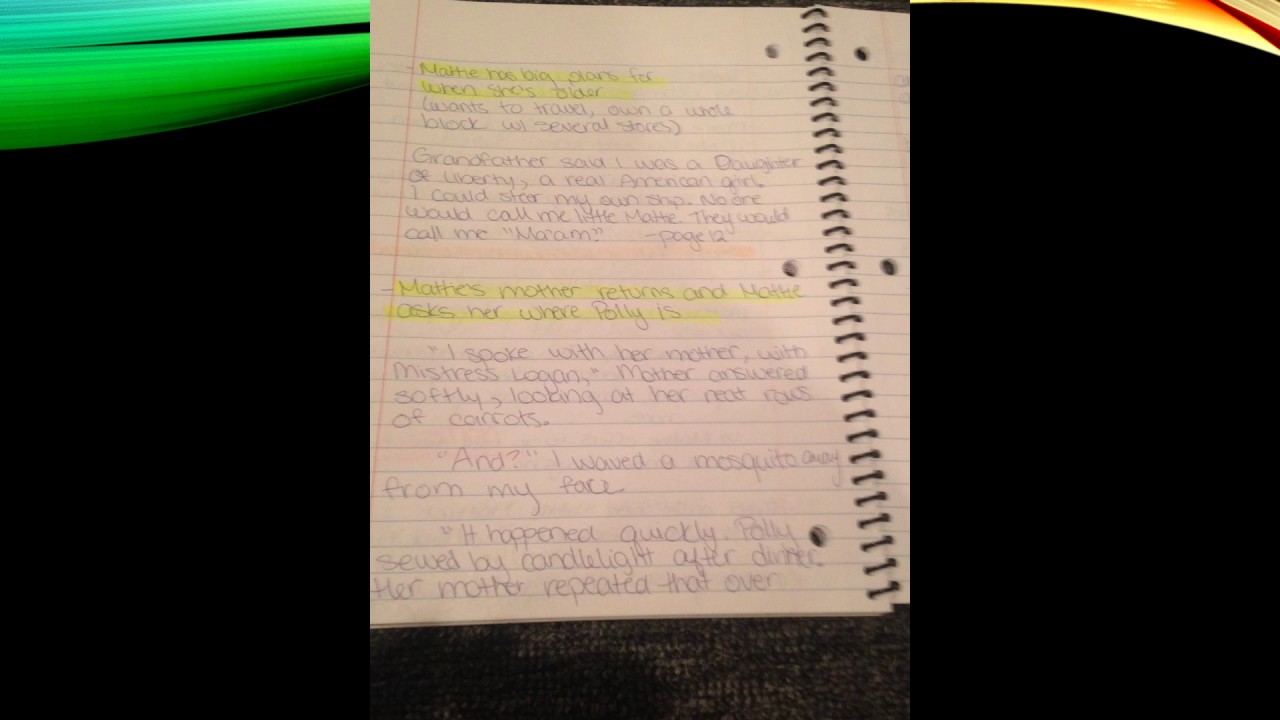 - Mattie has big plans for
when she's older
(wants to travel, own a whole
block w/ several stores)
Grandfather said I was a Daughter
of Liberty, a real American girl.
I could steer my own ship. No one
would call me little Mattie. They would
call me "Ma'am." -page 12
- Mattie's mother returns and Mattie
asks her where Polly is
"I spoke with her mother, with
Mistress Logan," Mother answered
softly, looking at her neat rows
of carrots.
"And?" I waved a mosquito away
from my face.
"It happened quickly. Polly
sewed by candlelight after dinner.
Her mother repeated that over